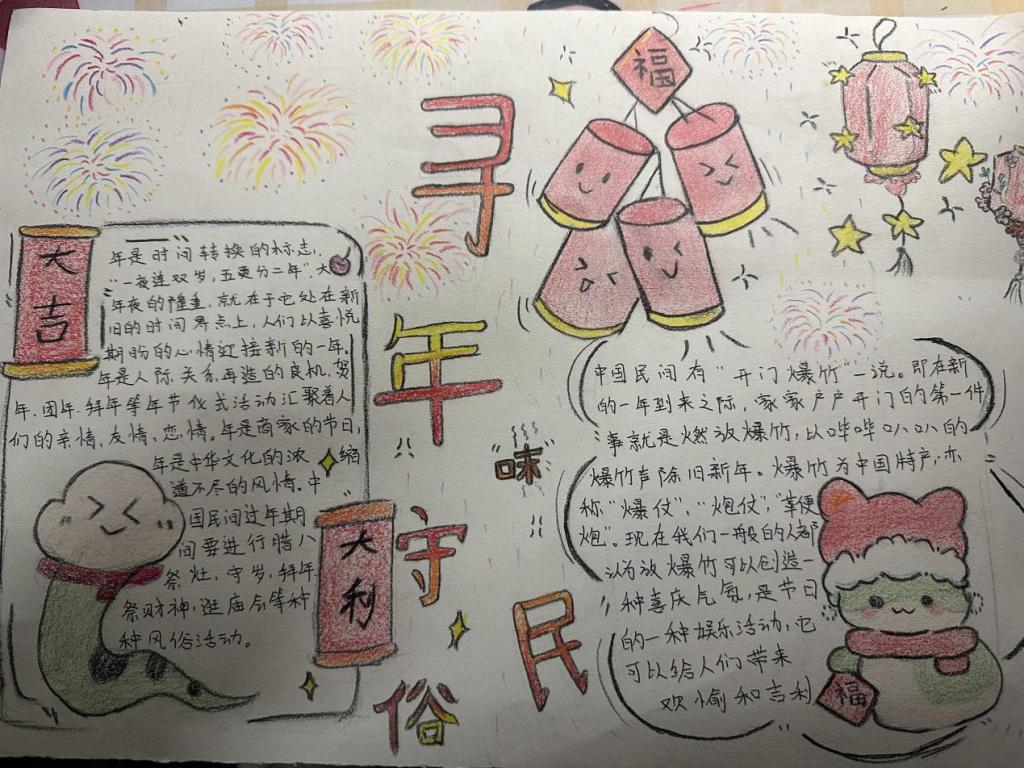 寻
年
味
守
民
俗
福
大吉
年是时间转换的标志，
“一夜连双岁，五更分二年”大
年夜的隆重，就在于它处在新
旧的时间界点上，人们以喜悦
期盼的心情迎接新的一年。
年是人际关系再造的良机，贺
年、团年、拜年等年节仪式活动汇聚着人
们的亲情、友情、恋情。年是商家的节日，
年是中华文化的浓缩
道不尽的风情。中
国民间过年期
间要进行腊八
祭灶，守岁，拜年
祭财神，逛庙会等种
种风俗活动。
大利
中国民间有“开门爆竹”一说。即在新
的一年到来之际，家家户户开门的第一件
事就是燃放爆竹，以哔哔叭叭的
爆竹声除旧新年。爆竹为中国特产，亦
称“爆仗”，“炮仗”，“鞭
炮”。现在我们一般的人都
认为放爆竹可以创造一
种喜庆气氛，是节日
的一种娱乐活动，它
可以给人们带来
欢愉和吉利
福